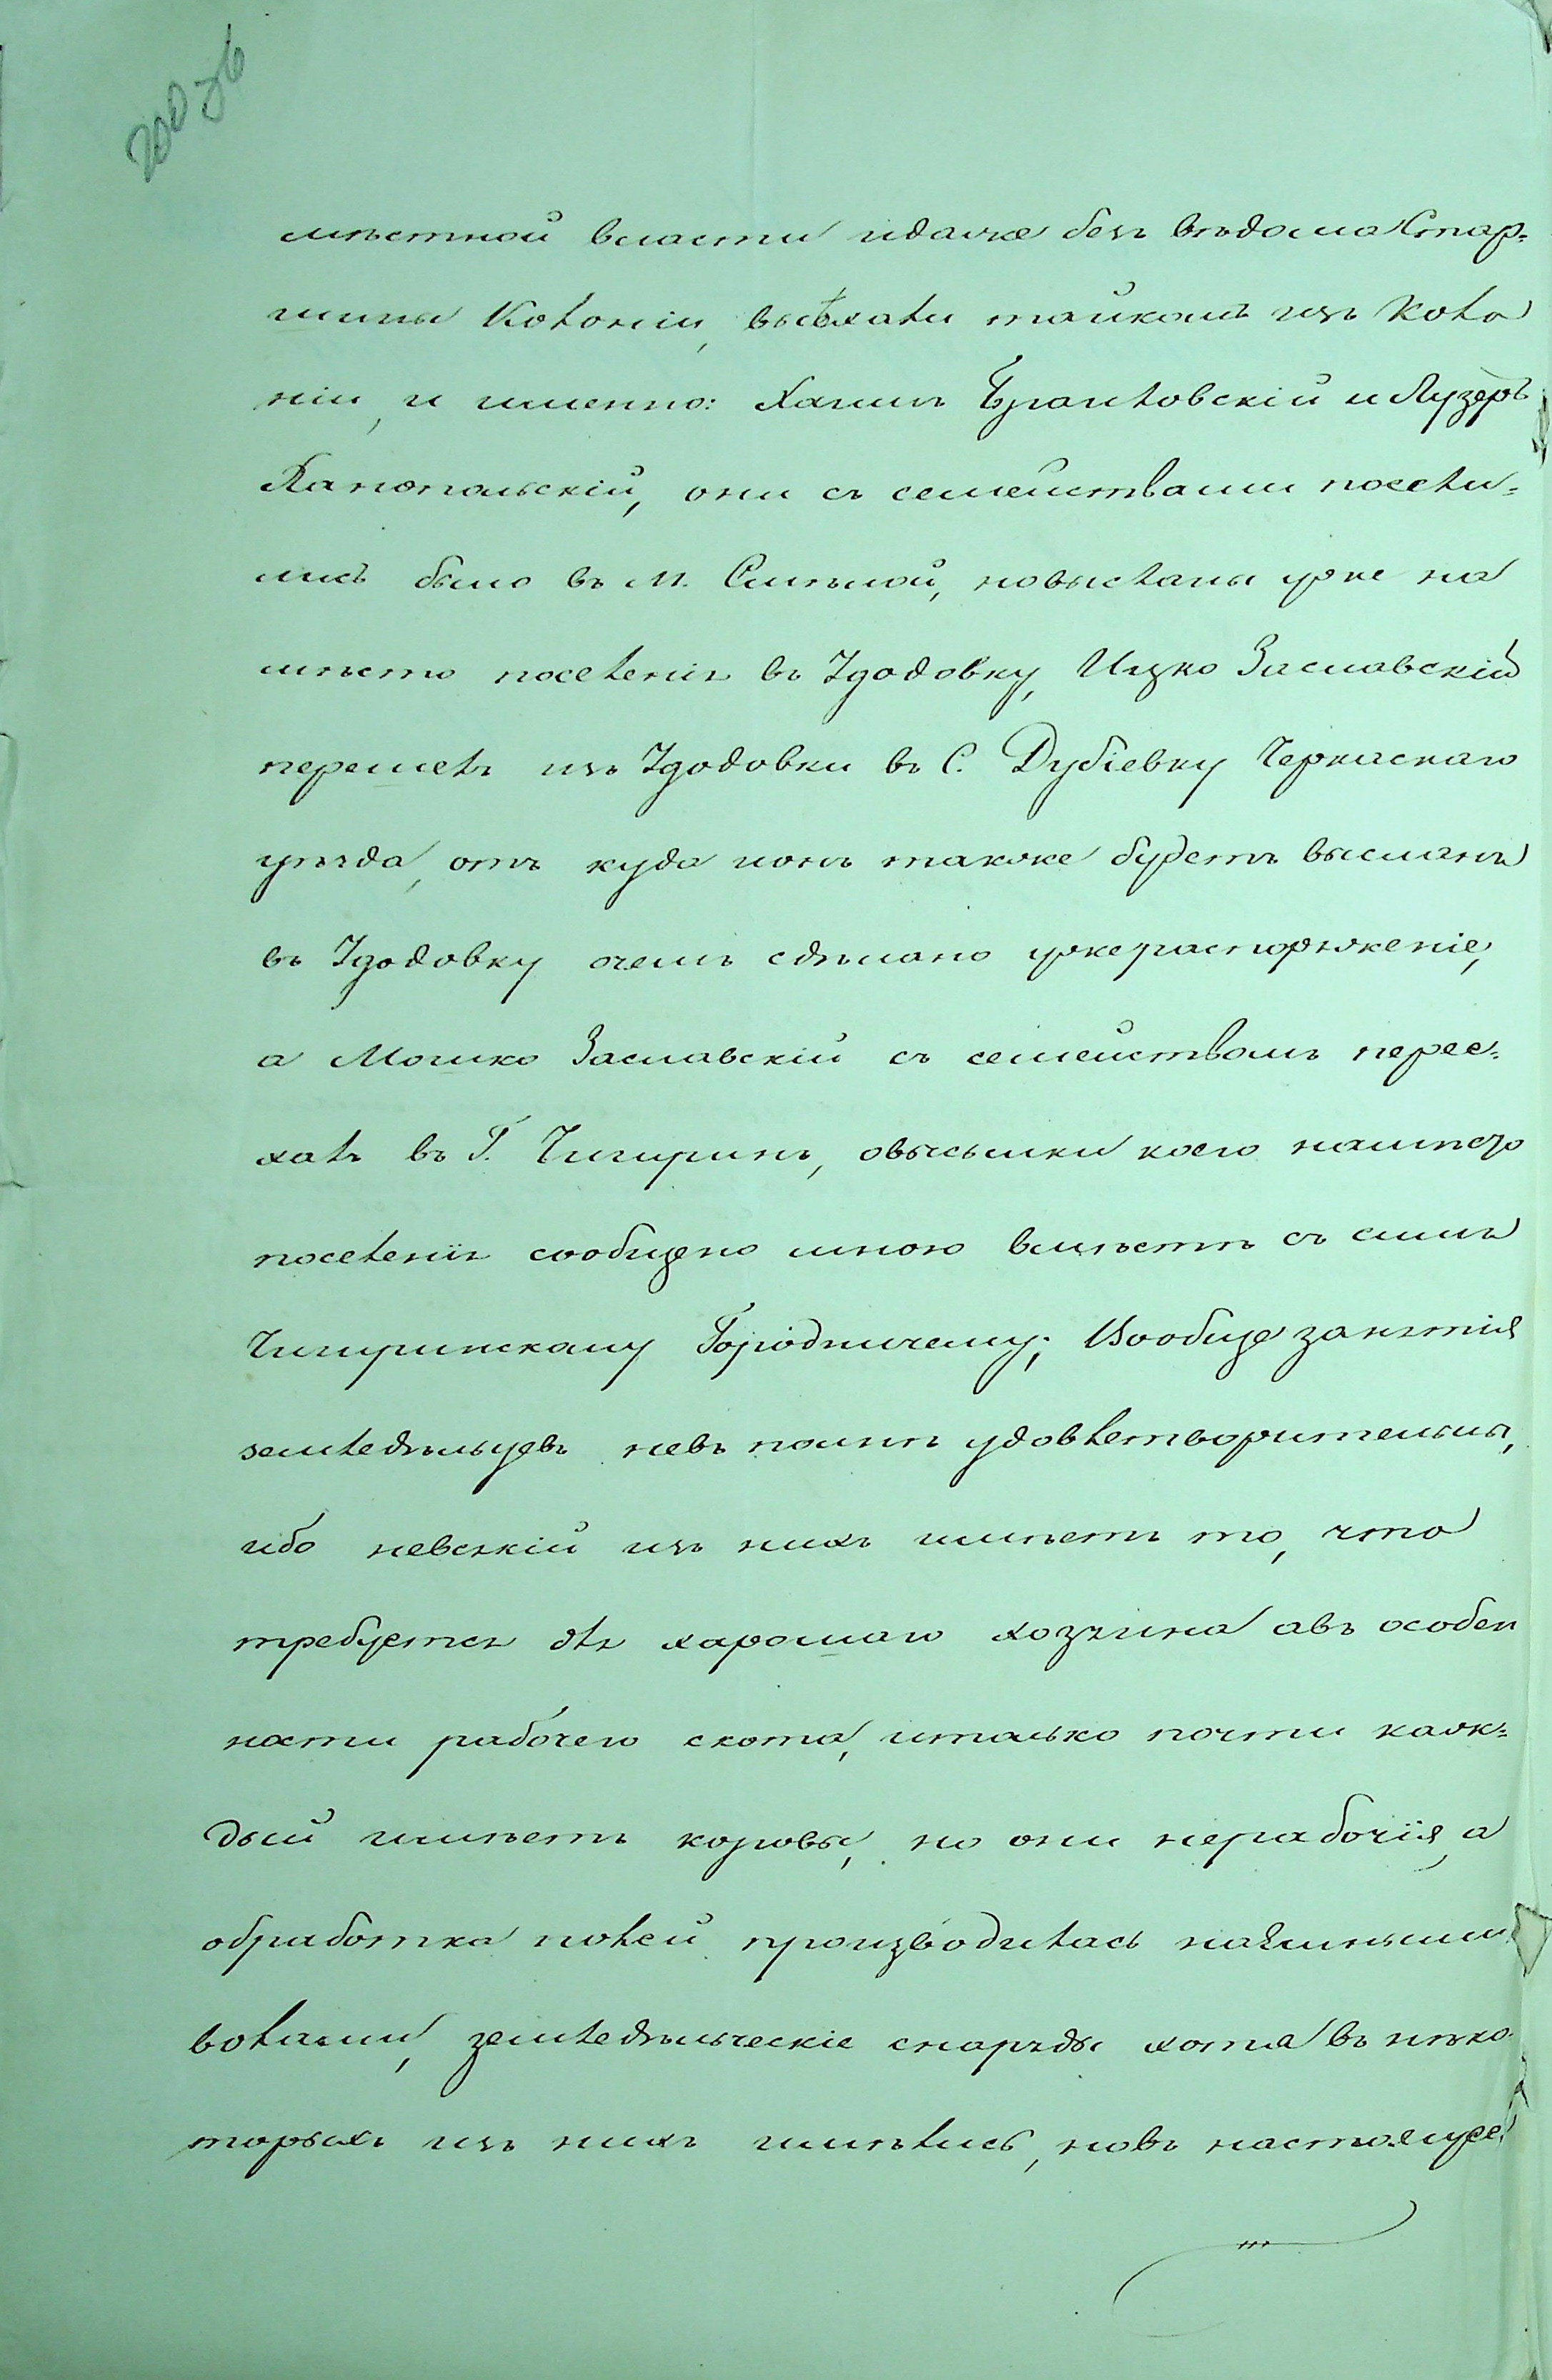 200 об
мѣстной власти идаже безъ вѣдома Стар=
шины Колоніи, выѣхали тайкомъ изъ Коло
ніи, и именно: Хаимъ Браиловскій и Лузеръ
Канопольскій, они съ семействами посели=
лись было въ М. Смѣлой, новысланы уже на
мѣсто поселенія въ Здодовку, Ицко Заславскій
перешелъ изъ Здодовки въ С. Дубіевку Черкаскаго
уѣзда, отъ куда ионъ также будетъ высланъ
въ Здодовку очемъ сдѣлано ужераспоряженіе,
а Мошко Заславскій съ семействомъ перее=
халъ въ Г. Чигиринъ, овысылки коего намѣсто
поселенія сообщено мною вмѣстѣ съ симъ
Чигиринскому Городничему; Вообще занятія
земледѣльцевъ невъ полнѣ удовлетворительны,
ибо невсякій изъ нихъ имѣетъ то, что
требуется для харошаго хозяина авъ особен
ности рабочего скота, итолько почти каж=
дый имѣетъ коровы, но они нерабочія, а
обработка полей производилась наемными
волами, земледѣльческіе снаряды хотя въ нѣко
торыхъ изъ нихъ имѣлись, новъ настоящее